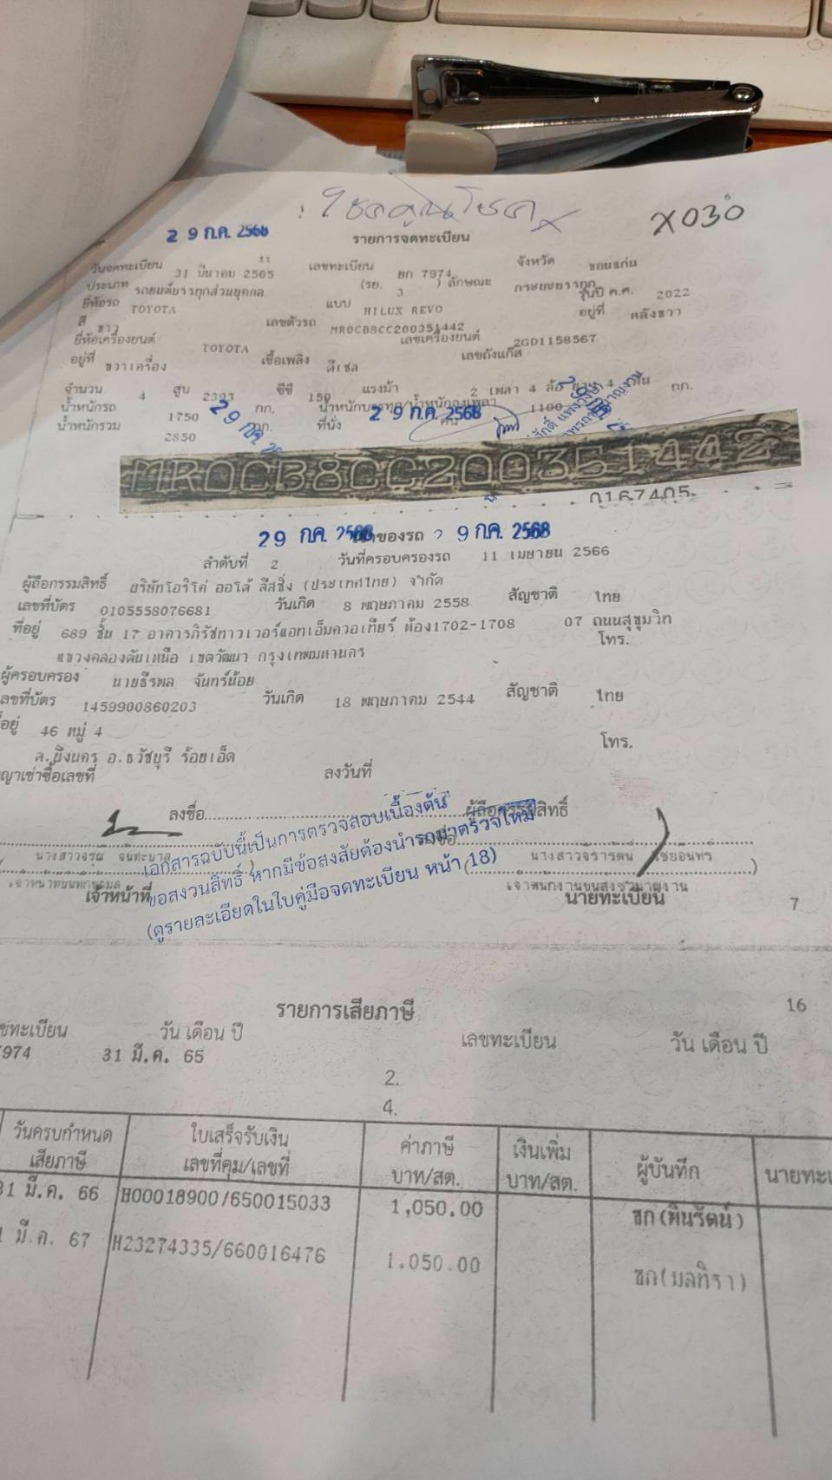 โชคคูณโชค
X030
29 ก.ค. 2568
รายการจดทะเบียน
วันจดทะเบียน 31 มีนาคม 2565 เลขทะเบียน ยก 7974 จังหวัด ขอนแก่น
ประเภท รถยนต์บรรทุกส่วนบุคคล (รย. 3 ) ลักษณะ กระบะบรรทุก
ยี่ห้อรถ TOYOTA แบบ HILUX REVO รุ่นปี ค.ศ. 2022
สี ขาว เลขตัวรถ MR0CB8CC200351442 อยู่ที่ หลังขวา
ยี่ห้อเครื่องยนต์ TOYOTA เลขเครื่องยนต์ 2GD1158567
อยู่ที่ ขวาเครื่อง เชื้อเพลิง ดีเซล เลขถังแก๊ส
จำนวน 4 สูบ 2393 ซีซี 150 แรงม้า 2 เพลา 4 ล้อ ยาง 4 เส้น
น้ำหนักรถ 1750 กก. น้ำหนักบรรทุก/น้ำหนักลงเพลา 1100 กก.
น้ำหนักรวม 2850 กก. ที่นั่ง คน
29 ก.ค. 2568
MR0CB8CC200351442
0167405
29 ก.ค. 2568 เจ้าของรถ 29 ก.ค. 2568
ลำดับที่ 2 วันที่ครอบครองรถ 11 เมษายน 2566
ผู้ถือกรรมสิทธิ์ บริษัทโอริโค่ ออโต้ ลีสซิ่ง (ประเทศไทย) จำกัด
เลขที่บัตร 0105558076681 วันเกิด 8 พฤษภาคม 2558 สัญชาติ ไทย
ที่อยู่ 689 ชั้น 17 อาคารภิรัชทาวเวอร์แอทเอ็มควอเทียร์ ห้อง1702-1708 07 ถนนสุขุมวิท
แขวงคลองตันเหนือ เขตวัฒนา กรุงเทพมหานคร โทร.
ผู้ครอบครอง นายธีรพล จันทร์น้อย
เลขที่บัตร 1459900860203 วันเกิด 18 พฤษภาคม 2544 สัญชาติ ไทย
อยู่ 46 หมู่ 4
ต.มิ่งนคร อ.ธวัชบุรี ร้อยเอ็ด โทร.
ญาเช่าซื้อเลขที่ ลงวันที่
ลงชื่อ ผู้ถือกรรมสิทธิ์
เอกสารฉบับนี้เป็นการตรวจสอบเบื้องต้น
ขอสงวนสิทธิ์ หากมีข้อสงสัยต้องนำรถมาตรวจใหม่
(ดูรายละเอียดในใบคู่มือจดทะเบียน หน้า 18)
เจ้าหน้าที่ นายทะเบียน
7
16
รายการเสียภาษี
ขทะเบียน วัน เดือน ปี เลขทะเบียน วัน เดือน ปี
7974 31 มี.ค. 65
2.
4.
วันครบกำหนด เสียภาษี ใบเสร็จรับเงิน เลขที่คุม/เลขที่ ค่าภาษี บาท/สต. เงินเพิ่ม บาท/สต. ผู้บันทึก นายทะเ
31 มี.ค. 66 H00018900/650015033 1,050.00 ขก(พินรัตน์)
มี.ค. 67 H23274335/660016476 1,050.00 ขก(มลทิรา)